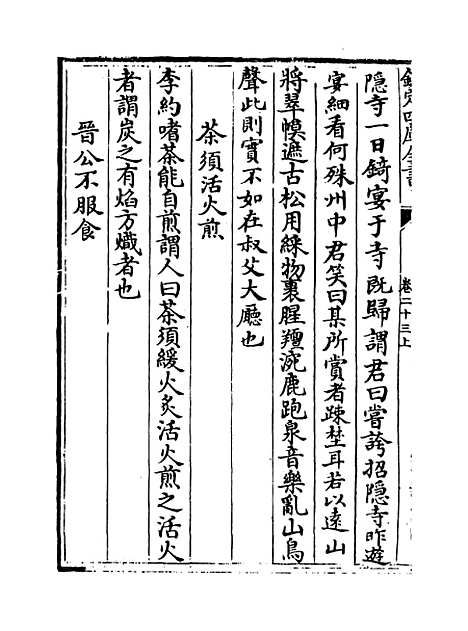 欽定四庫全書
卷二十三上
隠寺一日錡宴于寺既歸謂君曰嘗誇招隠寺昨遊
宴細看何殊州中君笑曰某所賞者疎埜耳若以遠山
將翠幙遮古松用綵物裹腥羶涴鹿跑泉音樂亂山鳥
聲此則實不如在叔父大廳也
茶須活火煎
李約嗜茶能自煎謂人曰茶須緩火炙活火煎之活火
者謂炭之有焰方熾者也
晉公不服食